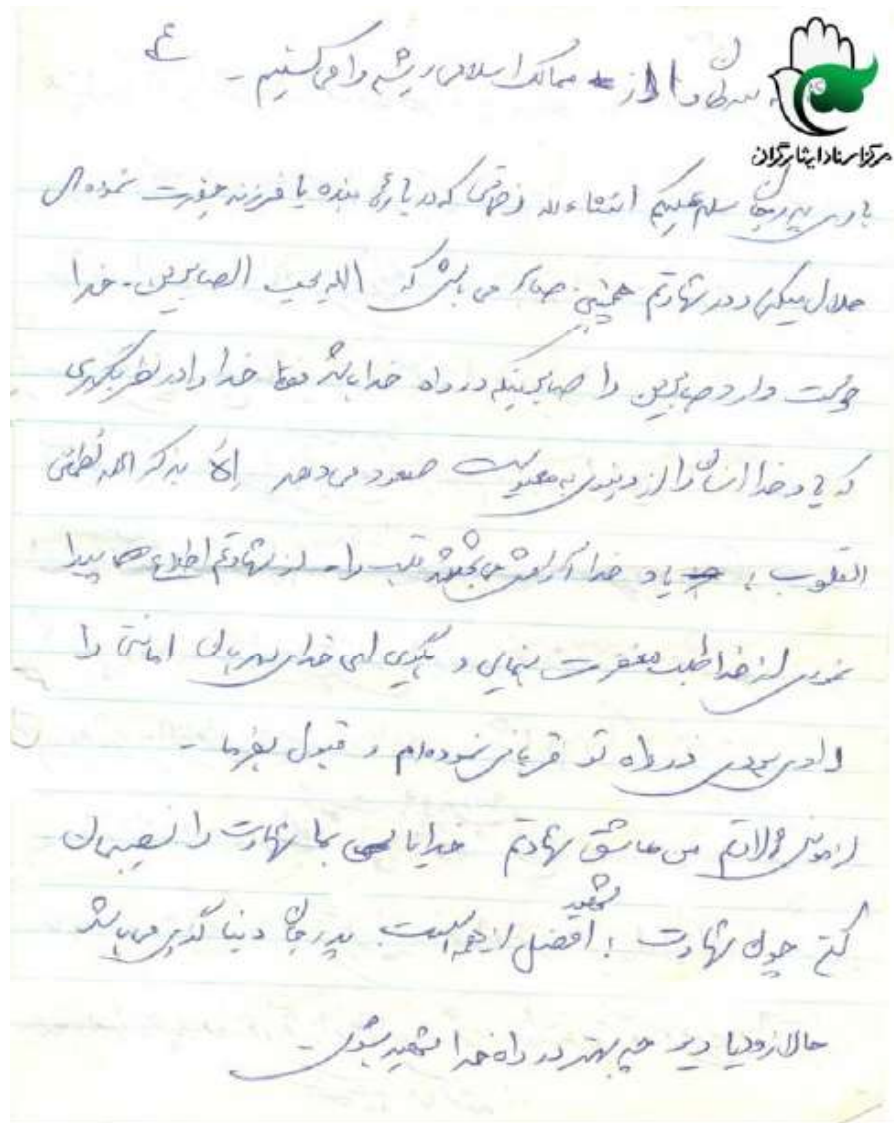 را از ممالک اسلامی ریشه را می‌کنیم -
مرکز اسناد ایثارگران
پدر جان سلام علیکم انشاءالله زحماتی که در باره‌ی بنده یا فرزند حقیرت نموده‌ای
حلال میکنی و در شهادتم همچنین صابر می باشی که الله یحب الصابرین - خدا
دوست دارد صابرین را صابرینیکه در راه خدا باشد فقط خدا را در نظر بگیری
که یاد خدا انسان را از به معنویت صعود می‌دهد إلا بذکر الله تطمئن
القلوب ، یاد خدا آرامش می‌بخشد قلب را - از شهادتم اطلاع پیدا
نمودی از خدا طلب مغفرت بنمایی و بگویی الهی خدای مهربان امانتی را
دادی بودی در راه تو قربانی نموده‌ام و قبول بفرما -
من عاشق شهادتم خدایا بما شهادت را نصیبمان
کن چون شهادت شهید افضل از همه است پدر جان دنیا گذری می باشد
حالا زود یا دیر چه بهتر در راه خدا شهید بشوی -